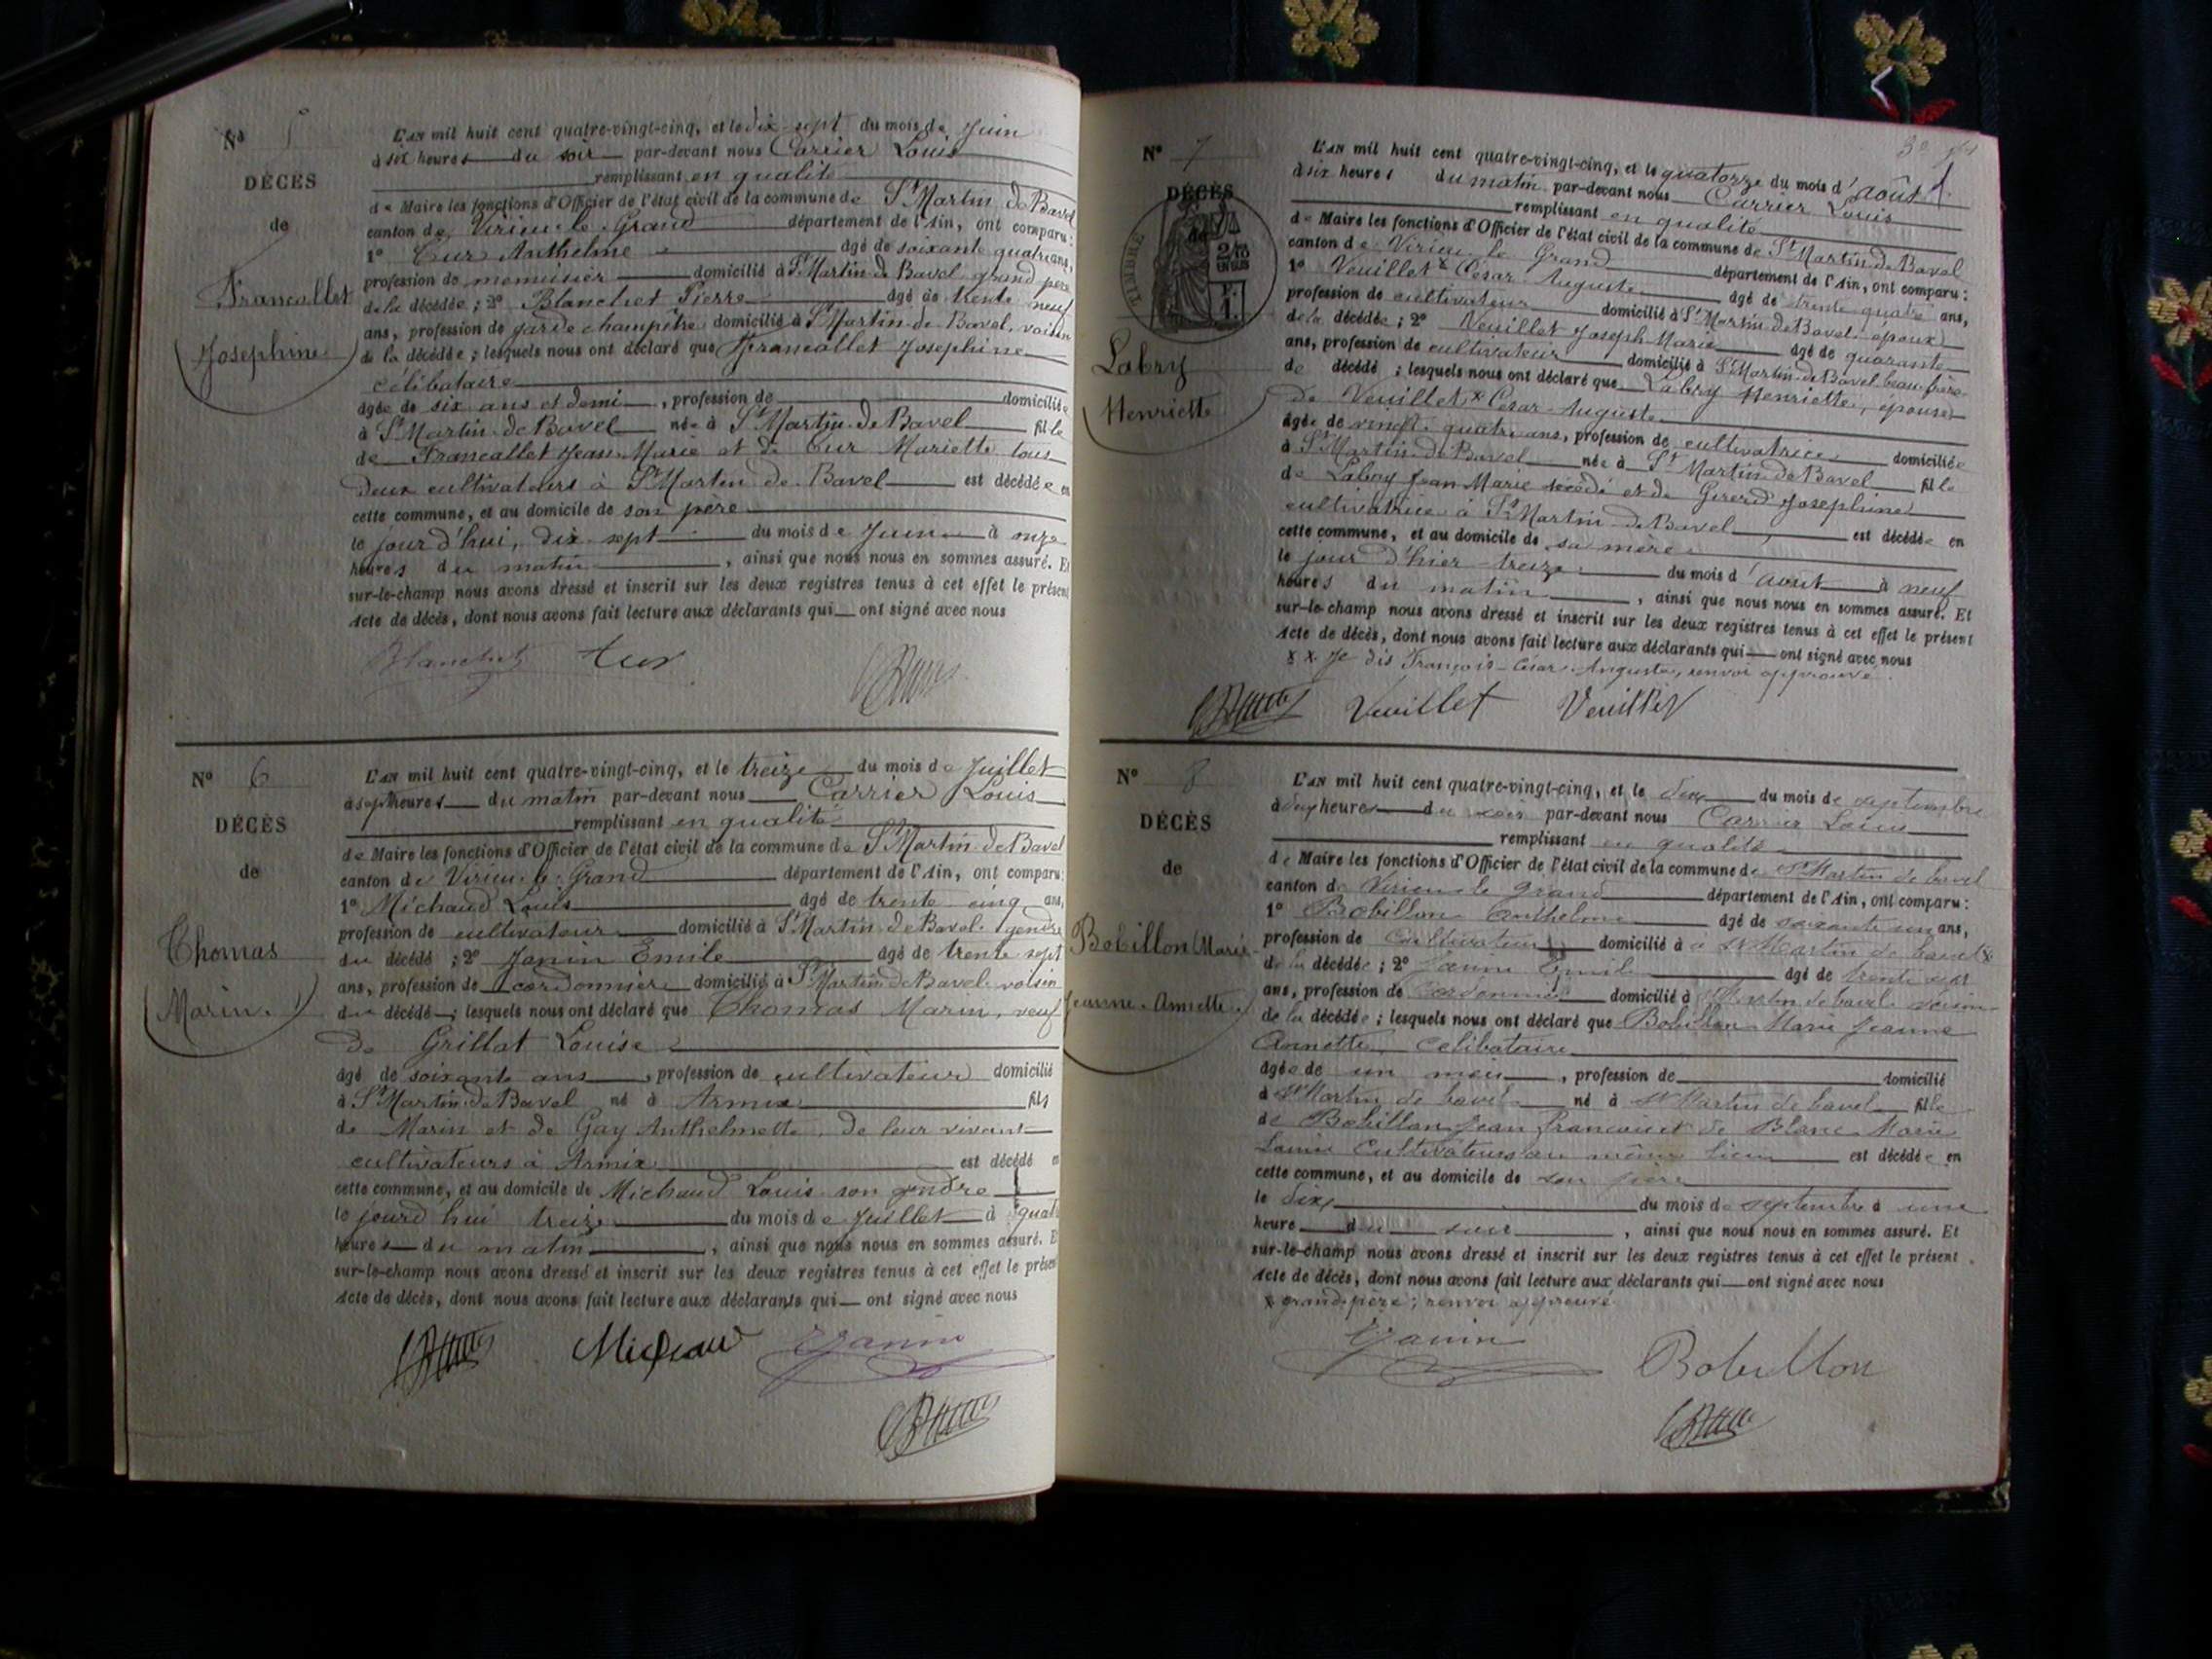 N° 5
DÉCÈS
de
Francallet
Josephine
L'AN mil huit cent quatre-vingt-cinq, et le dix-sept du mois de Juin
à six heures du soir par-devant nous Carrier Louis
remplissant en qualité
de Maire les fonctions d'Officier de l'état civil de la commune de St Martin de Bavel
canton de Virieu-le-Grand département de l'Ain, ont comparu :
1° Cur Anthelme âgé de soixante quatre ans,
profession de menuisier domicilié à St Martin de Bavel grand père
de la décédée ; 2° Blanchet Pierre âgé de trente neuf
ans, profession de garde champêtre domicilié à St Martin de Bavel, voisin
de la décédée ; lesquels nous ont déclaré que Francallet Josephine
célibataire
âgée de six ans et demi, profession de domiciliée
à St Martin de Bavel née à St Martin de Bavel fille
de Francallet Jean Marie et de Cur Mariette tous
deux cultivateurs à St Martin de Bavel est décédée en
cette commune, et au domicile de son père
le jour d'hui, dix sept du mois de Juin à onze
heures du matin, ainsi que nous nous en sommes assuré. Et
sur-le-champ nous avons dressé et inscrit sur les deux registres tenus à cet effet le présent
Acte de décès, dont nous avons fait lecture aux déclarants qui ont signé avec nous
Blanchet Cur
N° 6
DÉCÈS
de
Thomas
Marin
L'AN mil huit cent quatre-vingt-cinq, et le treize du mois de Juillet
à sept heures du matin par-devant nous Carrier Louis
remplissant en qualité
de Maire les fonctions d'Officier de l'état civil de la commune de St Martin de Bavel
canton de Virieu-le-Grand département de l'Ain, ont comparu :
1° Michaud Louis âgé de trente cinq ans,
profession de cultivateur domicilié à St Martin de Bavel gendre
du décédé ; 2° Janin Emile âgé de trente sept
ans, profession de cordonnier domicilié à St Martin de Bavel voisin
du décédé ; lesquels nous ont déclaré que Thomas Marin, veuf
de Grillat Louise
âgé de soixante ans, profession de cultivateur domicilié
à St Martin de Bavel né à Armix fils
de Marin et de Gay Anthelmette, de leur vivant
cultivateurs à Armix est décédé en
cette commune, et au domicile de Michaud Louis son gendre
le jourd'hui treize du mois de Juillet à quatre
heures du matin, ainsi que nous nous en sommes assuré. Et
sur-le-champ nous avons dressé et inscrit sur les deux registres tenus à cet effet le présent
Acte de décès, dont nous avons fait lecture aux déclarants qui ont signé avec nous
Michaud Janin
3e
N° 7
DÉCÈS
de
TIMBRE
Labry
Henriette
L'AN mil huit cent quatre-vingt-cinq, et le quatorze du mois d'août
à six heures du matin par-devant nous Carrier Louis
remplissant en qualité
de Maire les fonctions d'Officier de l'état civil de la commune de St Martin de Bavel
canton de Virieu le Grand département de l'Ain, ont comparu :
1° Veuillet x César Auguste âgé de trente quatre ans,
profession de cultivateur domicilié à St Martin de Bavel époux
de la décédée ; 2° Veuillet Joseph Marie âgé de quarante
ans, profession de cultivateur domicilié à St Martin de Bavel beau frère
de décédé ; lesquels nous ont déclaré que Labry Henriette, épouse
de Veuillet x César Auguste
âgée de vingt quatre ans, profession de cultivatrice domiciliée
à St Martin de Bavel née à St Martin de Bavel fille
de Labry Jean Marie décédé et de Girerd Josephine
cultivatrice à St Martin de Bavel, est décédée en
cette commune, et au domicile de sa mère
le jour d'hier treize du mois d'août à neuf
heures du matin, ainsi que nous nous en sommes assuré. Et
sur-le-champ nous avons dressé et inscrit sur les deux registres tenus à cet effet le présent
Acte de décès, dont nous avons fait lecture aux déclarants qui ont signé avec nous
x x Je dis François-César-Auguste, renvoi approuvé.
Veuillet Veuillet
N° 8
DÉCÈS
de
Bobillon Marie
Jeanne-Annette
L'AN mil huit cent quatre-vingt-cinq, et le dix du mois de septembre
à heures du soir par-devant nous Carrier Louis
remplissant en qualité
de Maire les fonctions d'Officier de l'état civil de la commune de St Martin de bavel
canton de Virieu le grand département de l'Ain, ont comparu :
1° Bobillon Anthelme âgé de soixante un ans,
profession de Cultivateur domicilié à a St Martin de bavel x
de la décédée ; 2° Janin Emile âgé de trente sept
ans, profession de Cordonnier domicilié à St Martin de bavel voisin
de la décédée ; lesquels nous ont déclaré que Bobillon Marie Jeanne
Annette Celibataire
âgée de un mois, profession de domicilié
à St Martin de bavel né à St Martin de bavel fille
de Bobillon Jean François et de Blanc Marie
Louise Cultivateurs au même lieu est décédée en
cette commune, et au domicile de son père
le dix du mois de septembre à une
heure du soir, ainsi que nous nous en sommes assuré. Et
sur-le-champ nous avons dressé et inscrit sur les deux registres tenus à cet effet le présent
Acte de décès, dont nous avons fait lecture aux déclarants qui ont signé avec nous
x grand-père ; renvoi approuvé
Janin Bobillon